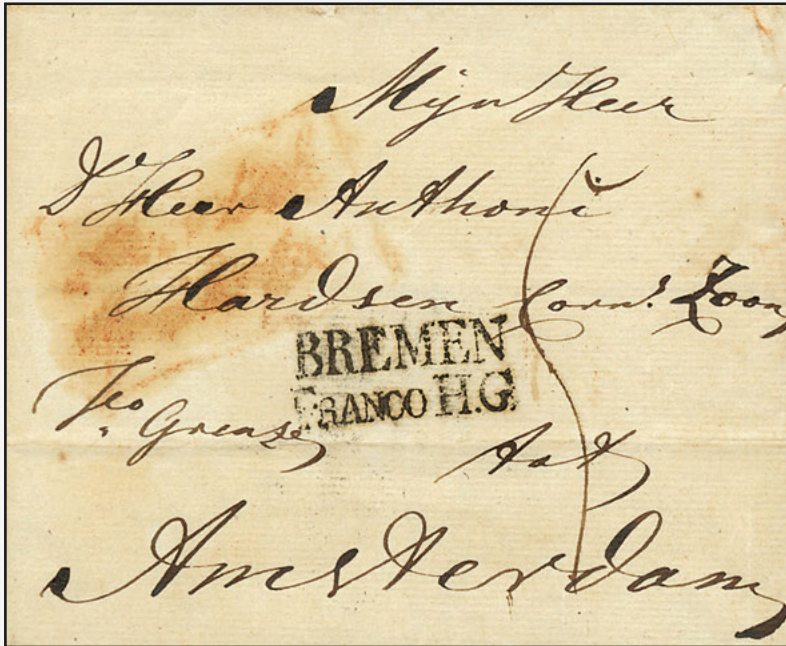 Mijn Heer
D'Heer Anthoni
Hardsen Corns. Zoon
BREMEN
FRANCO H.G.
fco Grense
tot
Amsterdam